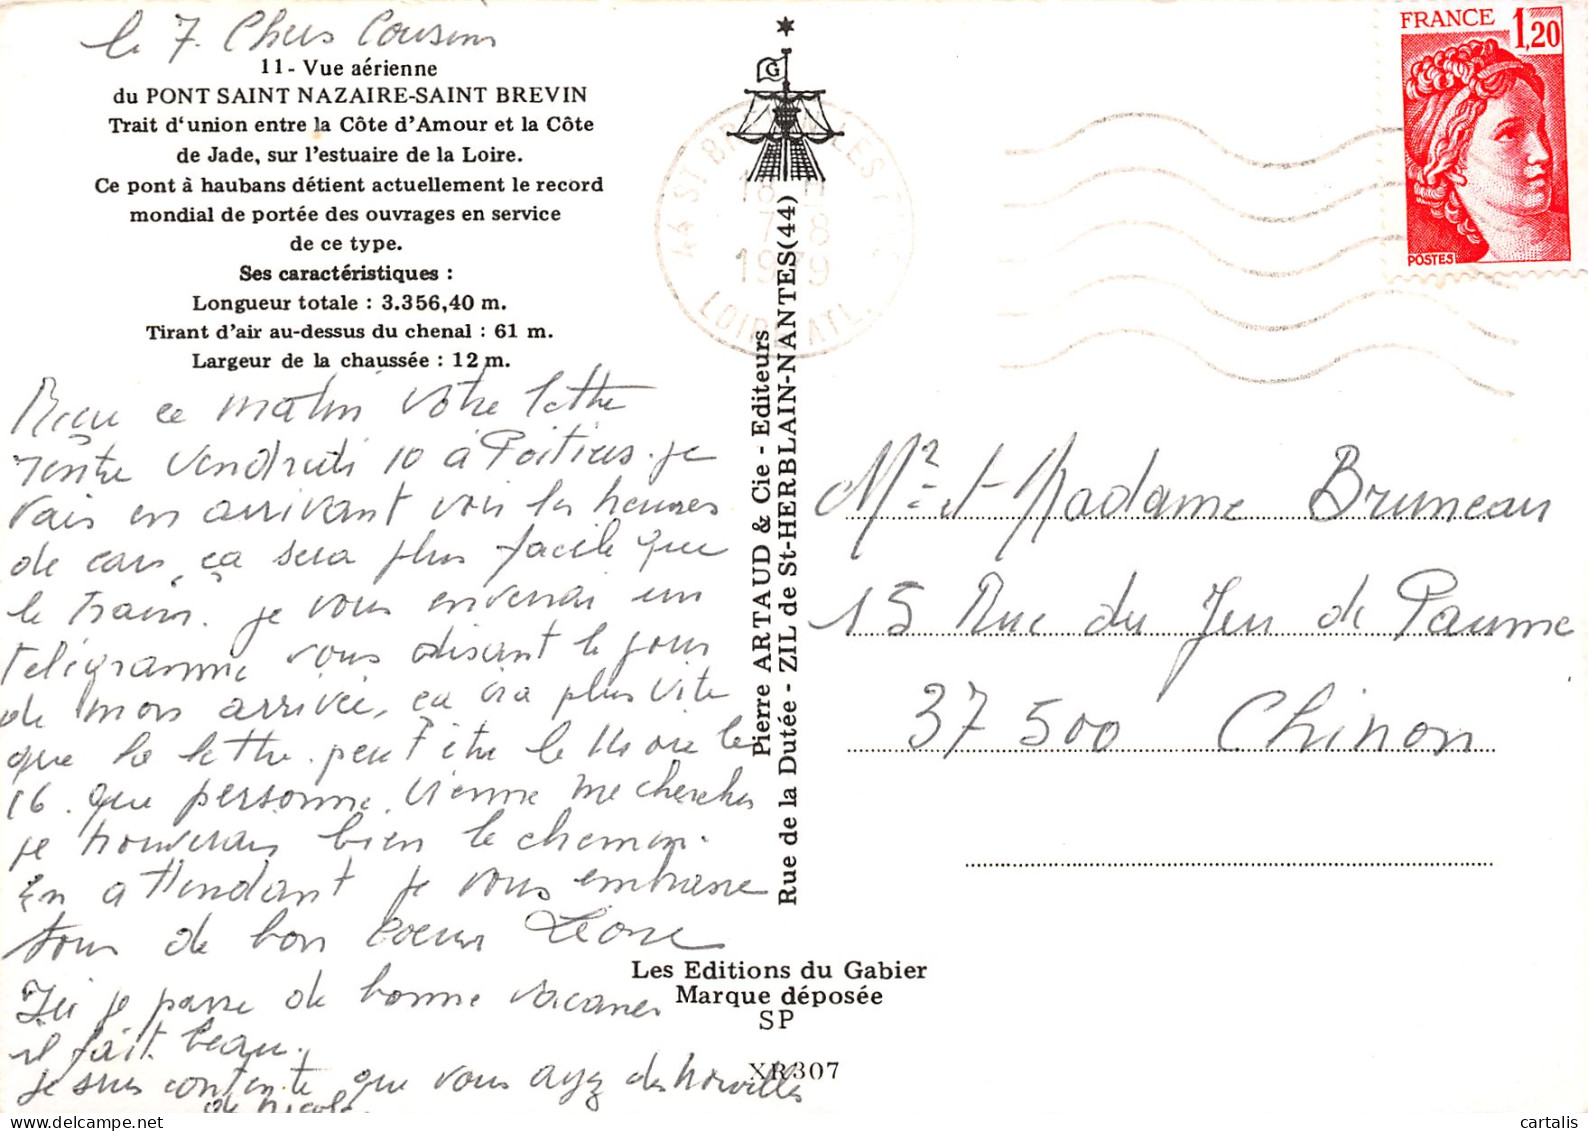 le 7. Chers Cousins
11 - Vue aérienne
du PONT SAINT NAZAIRE-SAINT BREVIN
Trait d'union entre la Côte d'Amour et la Côte
de Jade, sur l'estuaire de la Loire.
Ce pont à haubans détient actuellement le record
mondial de portée des ouvrages en service
de ce type.
Ses caractéristiques :
Longueur totale : 3.356,40 m.
Tirant d'air au-dessus du chenal : 61 m.
Largeur de la chaussée : 12 m.
Reçu ce matin votre lettre
rentre vendredi 10 à Poitiers. je
vais en arrivant voir les heures
de cars, ça sera plus facile que
le train. je vous enverrai un
télégramme vous disant le jour
de mon arrivée, ça ira plus vite
que la lettre. peut être le 14 ou le
16. que personne vienne me chercher
je trouverais bien le chemin.
En attendant je vous embrasse
tous de bon coeur Léone
Ici je passe de bonne vacances
il fait beau.
je suis contente que vous ayez des nouvelles
de Nicole
G
Pierre ARTAUD & Cie - Editeurs
Rue de la Dutée - ZIL de St-HERBLAIN-NANTES (44)
Les Editions du Gabier
Marque déposée
SP
XR307
44 ST BREVIN LES PINS
18 H
7-8
1979
LOIRE ATL.
FRANCE 1,20
POSTES
Mr et Madame Bruneau
15 Rue du Jeu de Paume
37 500 Chinon
cartalis